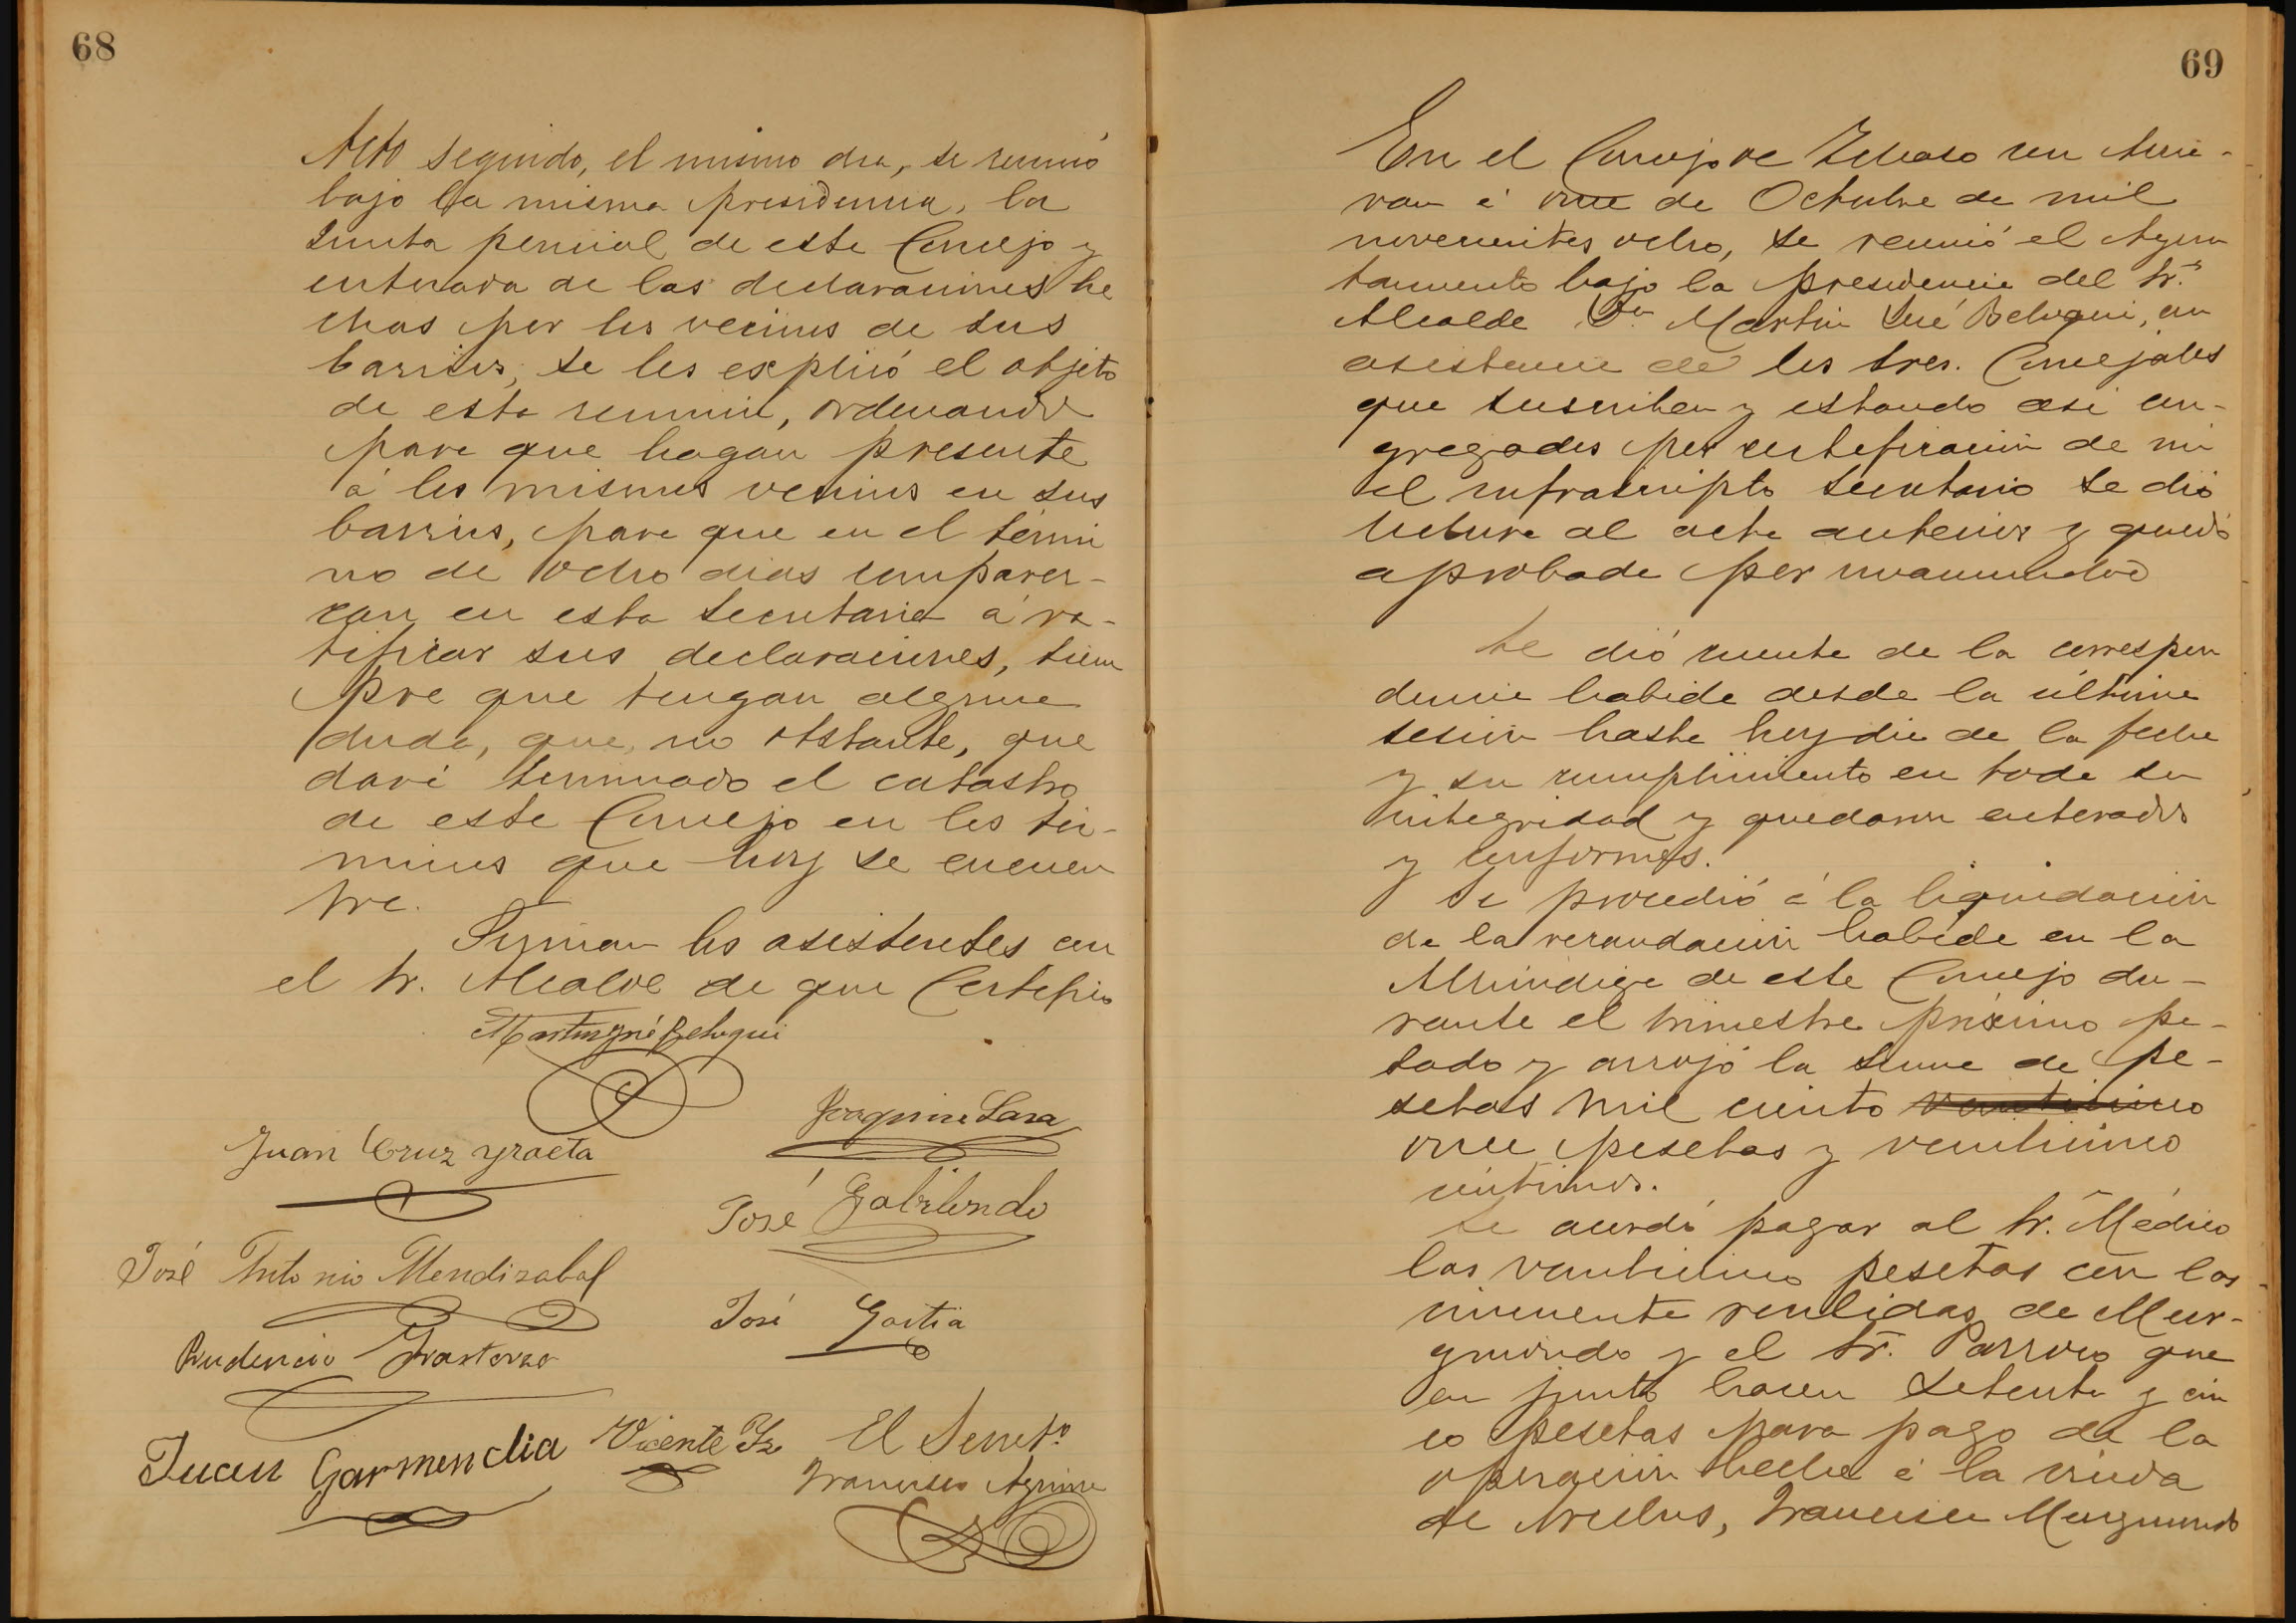 68
Acto segundo, el mismo dia, se reunió
bajo la misma presidencia, la
Junta pericial de este Concejo y
enterada de las declaraciones he
chas por los vecinos de sus
barrios, se les explicó el objeto
de esta reunion, ordenando
para que hagan presente
á los mismos vecinos en sus
barrios, para que en el termi
no de ocho dias comparez-
can en esta Secretaria á ra-
tificar sus declaraciones, siem
pre que tengan alguna
duda, que, no obstante, que
dará terminado el catastro
de este Concejo en los tér-
minos que hoy se encuen
tra.
Firman los asistentes con
el Sr. Alcalde de que Certifico
Martin José Beloqui
Joaquin Lasa
Juan Cruz Yraeta
José Gabilondo
José Antonio Mendizabal
José Goitia
Prudencio
Juan Garmendia
Vicente
El Secret.º
Francisco Aguirre
69
En el Concejo de Ichaso con Arria-
ran á once de Octubre de mil
novecientos ocho, se reunió el Ayun
tamiento bajo la presidencia del Sr.
Alcalde Dn. Martin José Beloqui, con
asistencia de los Sres. Concejales
que suscriben y estando asi con-
gregados por certificacion de mi
el infrascripto Secretario se dió
lectura al acta anterior y quedó
aprobada por unanimidad
Se dió cuenta de la correspon
dencia habida desde la última
sesion hasta hoy dia de la fecha
y su cumplimiento en toda su
integridad y quedaron enterados
y conformes.
Se procedió á la liquidacion
de la recaudacion habida en la
Alhóndiga de este Concejo du-
rante el trimestre próximo pa-
sado y arrojó la suma de pe-
setas mil ciento venticinco
once pesetas y venticinco
céntimos.
Se acordó pagar al Sr. Médico
las venticinco pesetas con las
cincuenta recibidas de Mur-
guiondo y el Sr. Parroco que
en junto hacen setenta y cin
co pesetas para pago de la
operacion hecha á la viuda
de Francisca Murguiondo